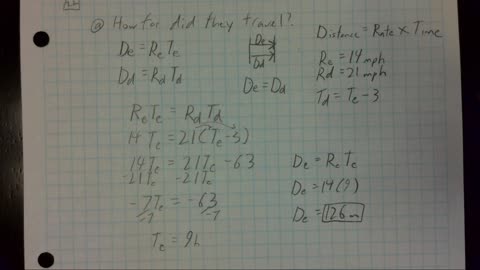 @ How far did they travel?
De = Re Te
Dd = Rd Td
De
Dd
De = Dd
Distance = Rate × Time
Re = 14 mph
Rd = 21 mph
Td = Te - 3
Re Te = Rd Td
14 Te = 21(Te - 3)
14 Te = 21 Te - 63
-21Te -21Te
-7Te = -63
-7 -7
Te = 9h
De = Re Te
De = 14(9)
De = 126m